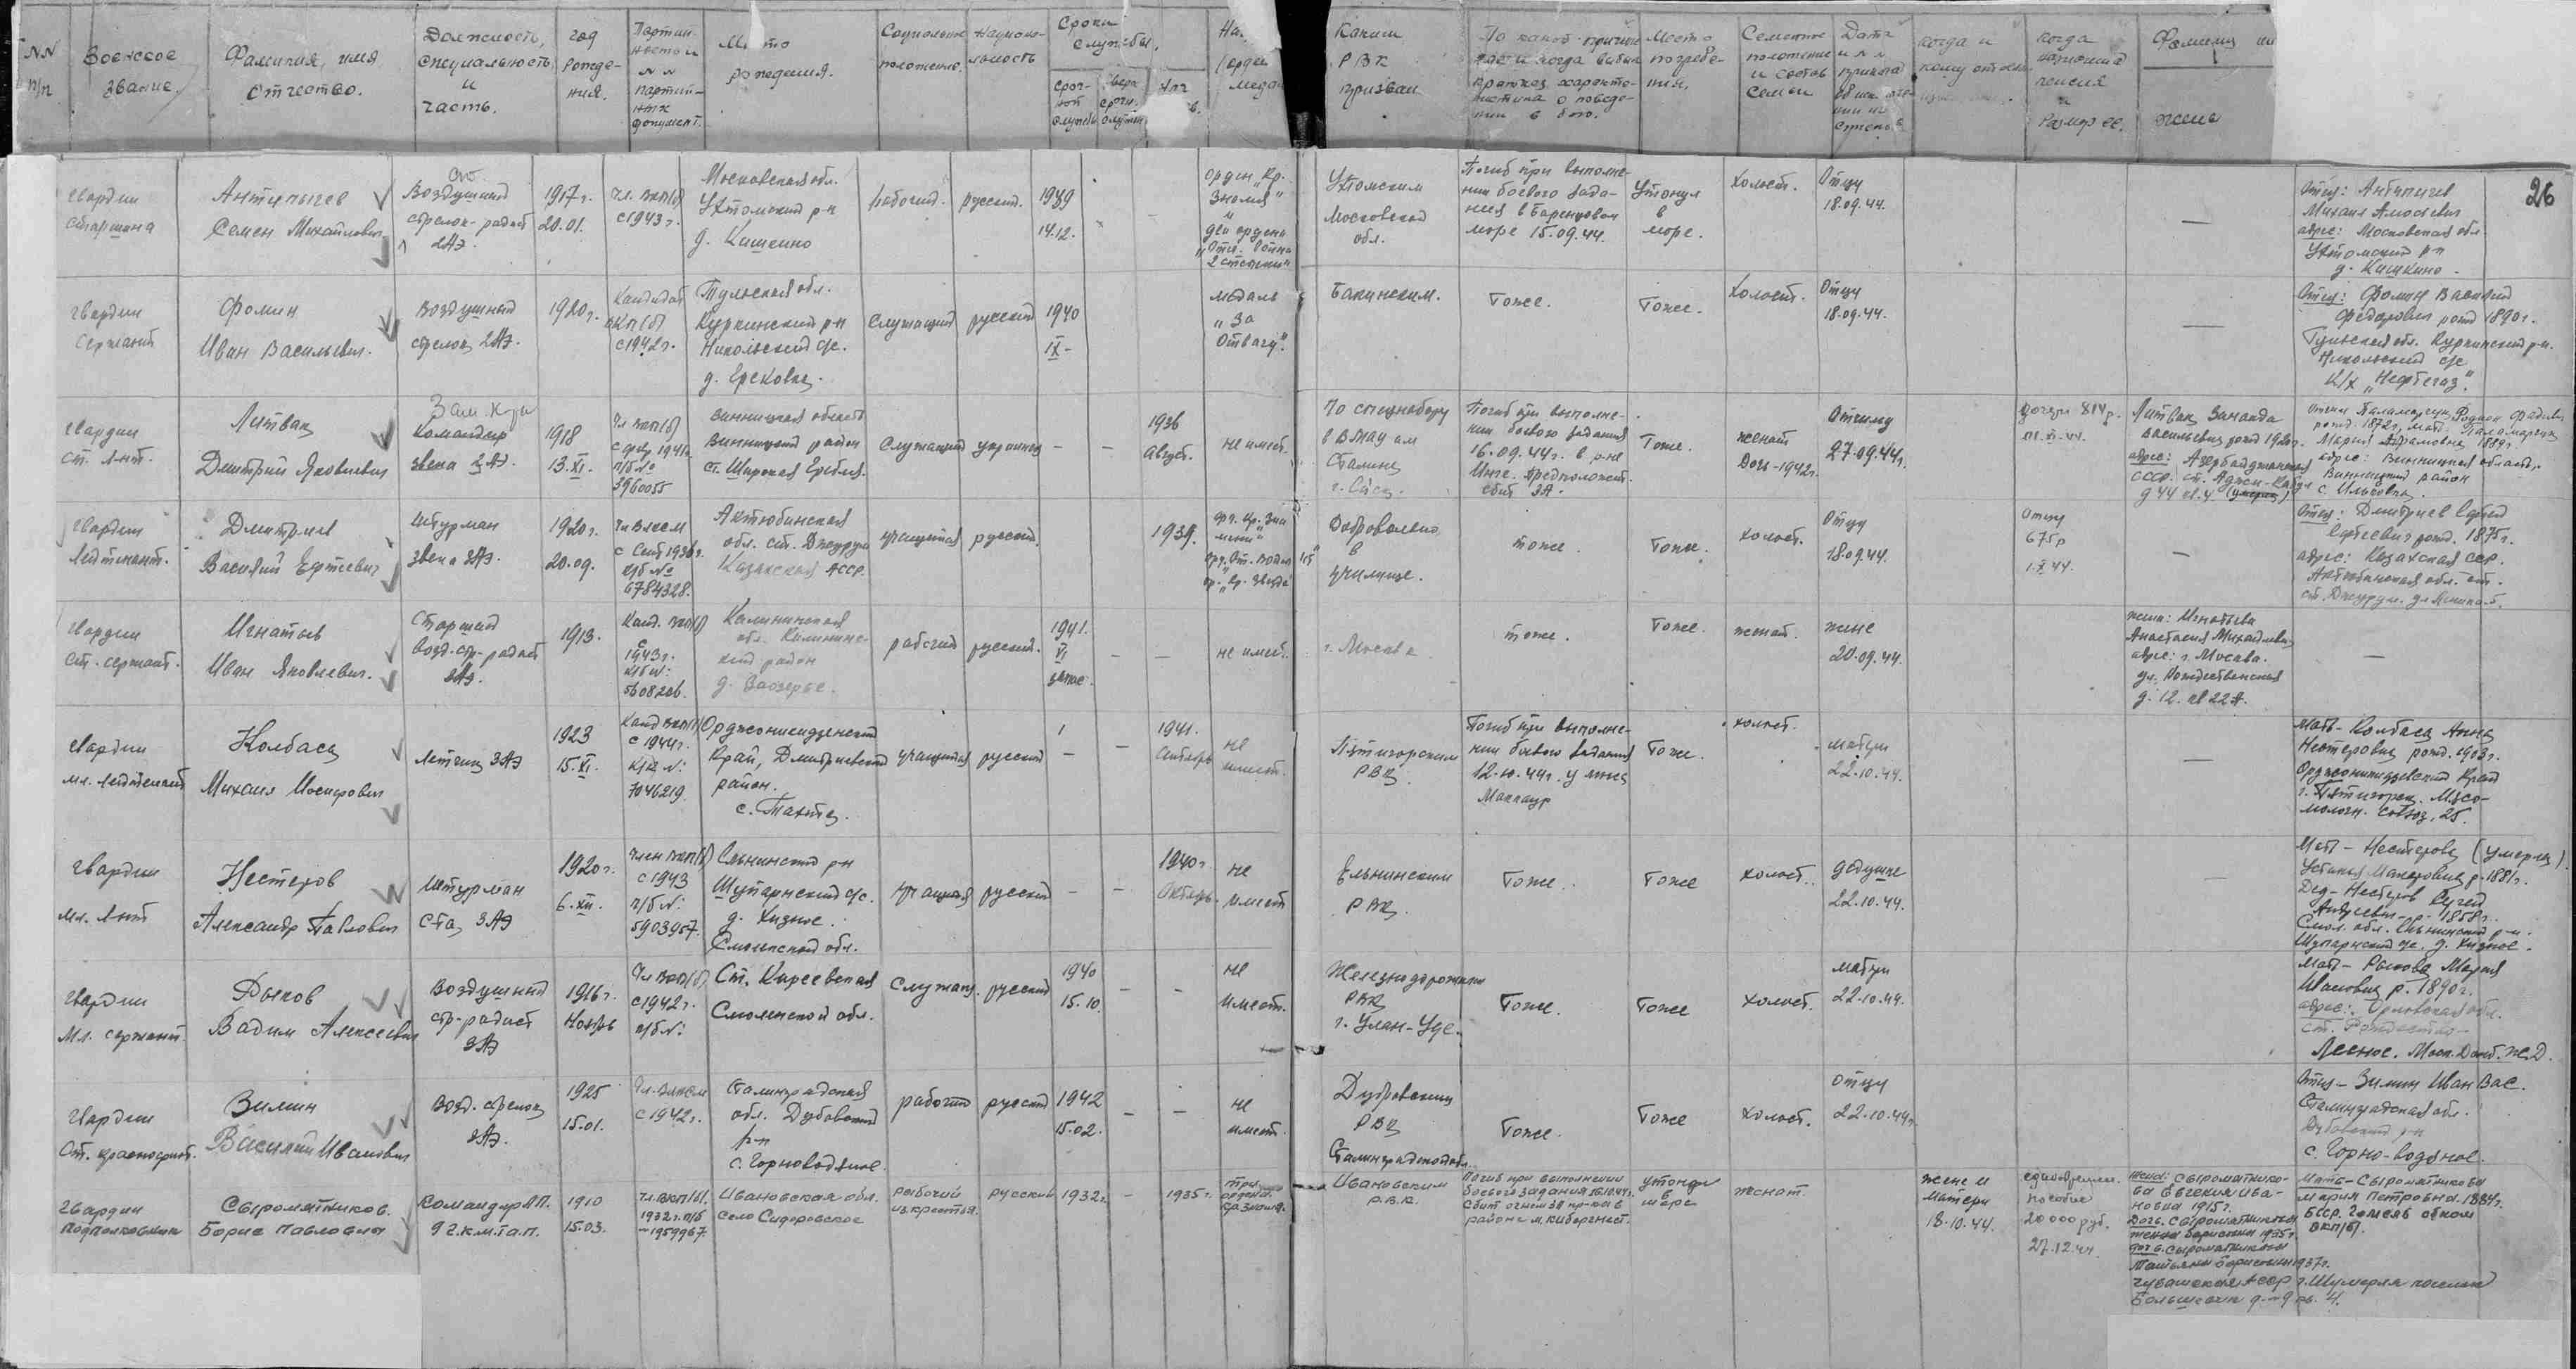 NN п/п
Воинское звание.
Фамилия, имя отчество.
Должность, специальность и часть.
год рождения.
Партийность и NN партийных документ.
Место рождения.
Социальное положение.
Национальность
Сроки службы.
срочной службы
сверх срочн. службы
На
Каким РВК призван
По какой причине где и когда выбыл краткая характеристика о поведении в бою.
Место погребения.
Семейное положение и состав семьи
Дата
когда и кому
когда назначена пенсия и размер ее.
Фамилия
жена
26
гвардии старшина
Антипычев Семен Михайлович
Воздушный стрелок-радист 2АЭ.
1917г. 20.01.
Чл. ВКП(б) с 1943г.
Московская обл. Ухтомский р-н д. Кишкино
рабочий.
русский.
1939 14.12.
орден "Кр. Знамя" два ордена "Отеч. война 2 степени"
Ухтомским Московской обл.
Погиб при выполнении боевого задания в Баренцовом море 15.09.44.
Утонул в море.
Холост.
Отцу 18.09.44.
—
Отец: Антипычев Михаил
адрес: Московская обл. Ухтомский р-н д. Кишкино.
гвардии сержант
Фомин Иван Васильевич.
Воздушный стрелок 2АЭ.
1920г.
Кандидат ВКП(б) с 1942г.
Тульская обл. Куркинский р-н Никольский с/с.
Служащий
русский
1940 IX-
медаль "За Отвагу".
Бакинским.
Тоже.
Тоже.
Холост.
Отцу 18.09.44.
—
Отец: Фомин Василий Федорович рожд 1890г.
Тульская обл. Куркинский р-н. Никольский с/с к/х "Нефтегаз".
гвардии ст. лнт.
Литвак Дмитрий Яковлевич
Зам. к-ра Командир звена 2АЭ.
1918 13.XI.
Чл ВКП(б) с февр. 1941г. п/б№ 3960055
Винницкая область Винницкий район ст. Широкая Гребля.
Служащий
украинец
—
—
1936 Август.
не имеет.
По спецнабору в ВМАУ им Сталина г. Ейск.
Погиб при выполнении боевого задания 16.09.44г. в р-не Инге. Предположит. сбит ЗА.
Тоже.
женат Дочь-1942г.
Отчиму 27.09.44г.
Литвак Зинаида Васильевна рожд 1920г.
адрес: Азербайджанская ССР.
Винницкая область, Винницкий район
гвардии Лейтенант.
Дмитриев Василий Ефтеевич
Штурман звена 2АЭ.
1920г. 20.09.
Чл ВЛКСМ с Сент 1936г. №6784328.
Актюбинская обл. ст. Джурун Казахская АССР.
учащийся
русский.
1939.
Добровольно в училище.
тоже.
Тоже.
холост.
Отцу 18.09.44.
Отцу 675р 1.X.44.
—
Отец: Дмитриев
рожд. 1875г.
адрес: Казахская ССР. Актюбинская обл. ст. Джурун. ул Ленина-5.
гвардии ст. сержант.
Игнатьев Иван Яковлевич.
Старший возд. стр-радист 3АЭ.
1913.
Канд. ВКП(б) с 1943г. к/б№: 5608206.
Калининская обл. Калининский район д. Заозерье.
рабочий
русский.
1941. VI запас.
—
—
не имеет.
г. Москва
тоже.
Тоже.
женат.
жене 20.09.44.
жена: Игнатьева Анастасия Михайловна
адрес: г. Москва. ул. Рождественская д. 12. кв 22А.
—
гвардии мл. лейтенант
Колбаса Михаил Иосифович
Летчик 3АЭ
1923 15.XI.
Канд ВКП(б) с 1944г. к/к №: 7046219.
Орджоникидзевский край, Дмитриевский район. с. Тахта.
учащийся
русский
—
—
1941. Сентябрь
не имеет.
Пятигорским РВК.
Погиб при выполнении боевого задания 12.10.44г. у мыса Маккаур
Тоже.
холост.
матери 22.10.44.
—
Мать - Колбаса Анна Нестеровна рожд. 1903г.
Орджоникидзевский край г. Пятигорск. Мясо-молочн. совхоз, 25.
гвардии мл. лнт
Нестеров Александр Павлович
Штурман с-та, 3АЭ
1920г. 6.XII.
Член ВКП(б) с 1943 п/б№: 5903957.
Ельнинский р-н Шупарнский с/с. д. Хизное. Смоленской обл.
учащийся
русский
—
—
1940г. Октябрь.
не имеет
Ельнинским РВК.
Тоже.
Тоже
холост.
дедушке 22.10.44.
Мать - Нестерова (умерла)
р. 1881г.
Дед - Нестеров
1858г.
Смол. обл. Ельнинский р-н.
гвардии Мл. сержант.
Рыков Вадим Алексеевич
Воздушный стр-радист 3АЭ
1916г. Ноябрь
Чл ВКП(б) с 1942г. п/б№:
Ст. Киреевская Смоленской обл.
Служащ.
русский
1940 15.10.
—
—
не имеет.
Железнодорожным РВК г. Улан-Удэ.
Тоже.
Тоже
холост
матери 22.10.44.
Мать - Рыкова Мария Ивановна р. 1890г.
адрес: Орловская обл.
Лесное. Моск. Донб. ж.д.
гвардии Ст. краснофлот.
Зимин Василий Иванович
Возд. стрелок 3АЭ.
1925 15.01.
Чл. ВЛКСМ с 1942г.
Сталинградская обл. Дубовский р-н с. Горноводяное.
рабочий
русский
1942 15.02.
—
—
не имеет.
Дубовским РВК Сталинградской обл.
Тоже.
Тоже
холост.
Отцу 22.10.44г.
Отец - Зимин Иван Вас.
Сталинградская обл. Дубовский р-н с. Горно-водяное.
Гвардии подполковник
Сыромятников Борис Павлович
Командир АП. 9 г.к.м.т.а.п.
1910 15.03.
Чл. ВКП(б). 1932г. п/б -1959967.
Ивановская обл. Село Сидоровское
рабочий из крестья.
русский
1932г.
—
1935г.
Три ордена кр. знамя.
Ивановским Р.В.К.
Погиб при выполнении боевого задания 16.10.44г. Сбит огнем ЗА пр-ка в районе м. Кибергнест.
утонул в море
женат.
жене и матери 18.10.44.
единоврем. пособие 20000 руб. 27.12.44
Жена: Сыромятникова Евгения Ивановна 1915г.
Дочь. Сыромятникова Жанна Борисовна 1935г.
Дочь. Сыромятникова Татьяна Борисовна 1937г.
Чувашская АССР г. Шумерля поселок Большевик д-9 кв. 4.
Мать - Сыромятникова Мария Петровна. 1884г.
БССР. Гомель обком ВКП(б).